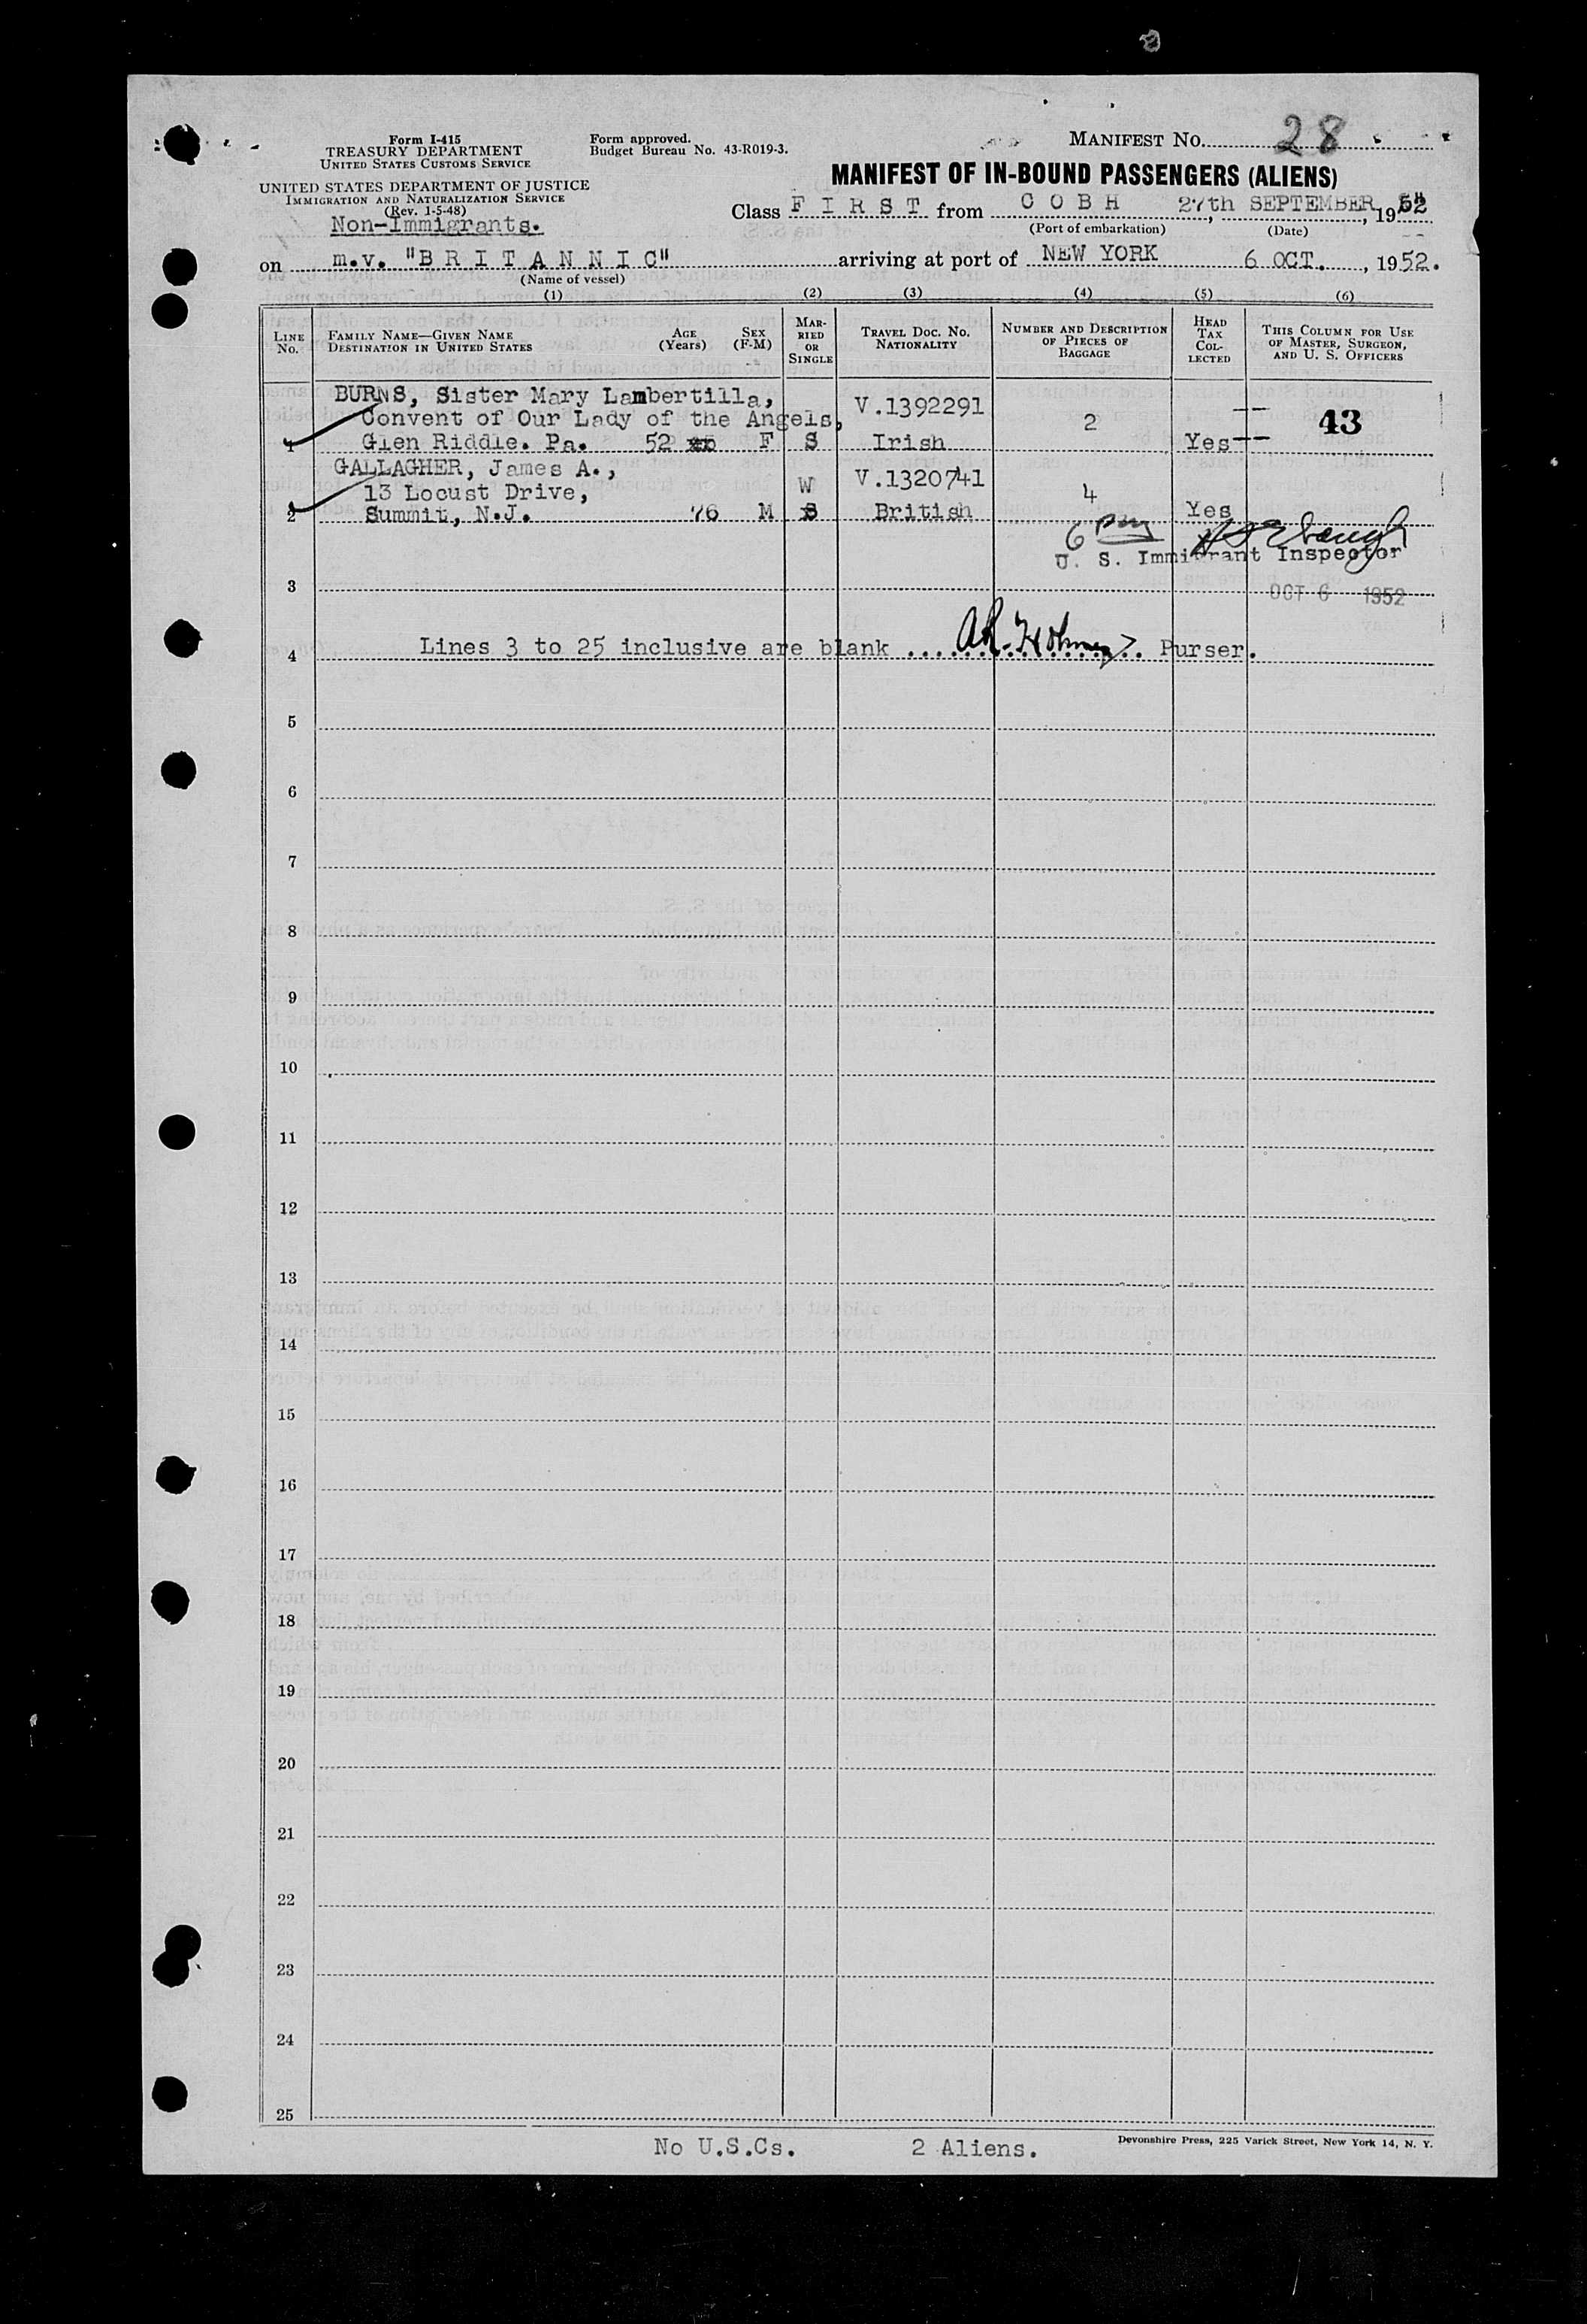 MANIFEST NO. 28
Form I-415
TREASURY DEPARTMENT
UNITED STATES CUSTOMS SERVICE
Form approved.
Budget Bureau No. 43-R019-3.
UNITED STATES DEPARTMENT OF JUSTICE
IMMIGRATION AND NATURALIZATION SERVICE
(Rev. 1-5-48)
Non-Immigrants.
MANIFEST OF IN-BOUND PASSENGERS (ALIENS)
Class FIRST from COBH 27th SEPTEMBER, 1952
(Port of embarkation) (Date)
on m.v. "BRITANNIC" arriving at port of NEW YORK 6 OCT., 1952.
(Name of vessel)
(1) (2) (3) (4) (5) (6)
LINE No.
FAMILY NAME—GIVEN NAME
DESTINATION IN UNITED STATES
AGE (Years)
SEX (F-M)
MARRIED OR SINGLE
TRAVEL DOC. NO. NATIONALITY
NUMBER AND DESCRIPTION OF PIECES OF BAGGAGE
HEAD TAX COLLECTED
THIS COLUMN FOR USE OF MASTER, SURGEON, AND U. S. OFFICERS
BURNS, Sister Mary Lambertilla, V.1392291
Convent of Our Lady of the Angels, 2 -- 43
1 Glen Riddle. Pa. 52 F S Irish Yes--
GALLAGHER, James A., V.1320741
13 Locust Drive, W 4
2 Summit, N.J. 76 M S British Yes
6
U. S. Immigrant Inspector
3 OCT 6 1952
4 Lines 3 to 25 inclusive are blank ........ Purser.
5
6
7
8
9
10
11
12
13
14
15
16
17
18
19
20
21
22
23
24
25
No U.S.Cs. 2 Aliens.
Devonshire Press, 225 Varick Street, New York 14, N. Y.